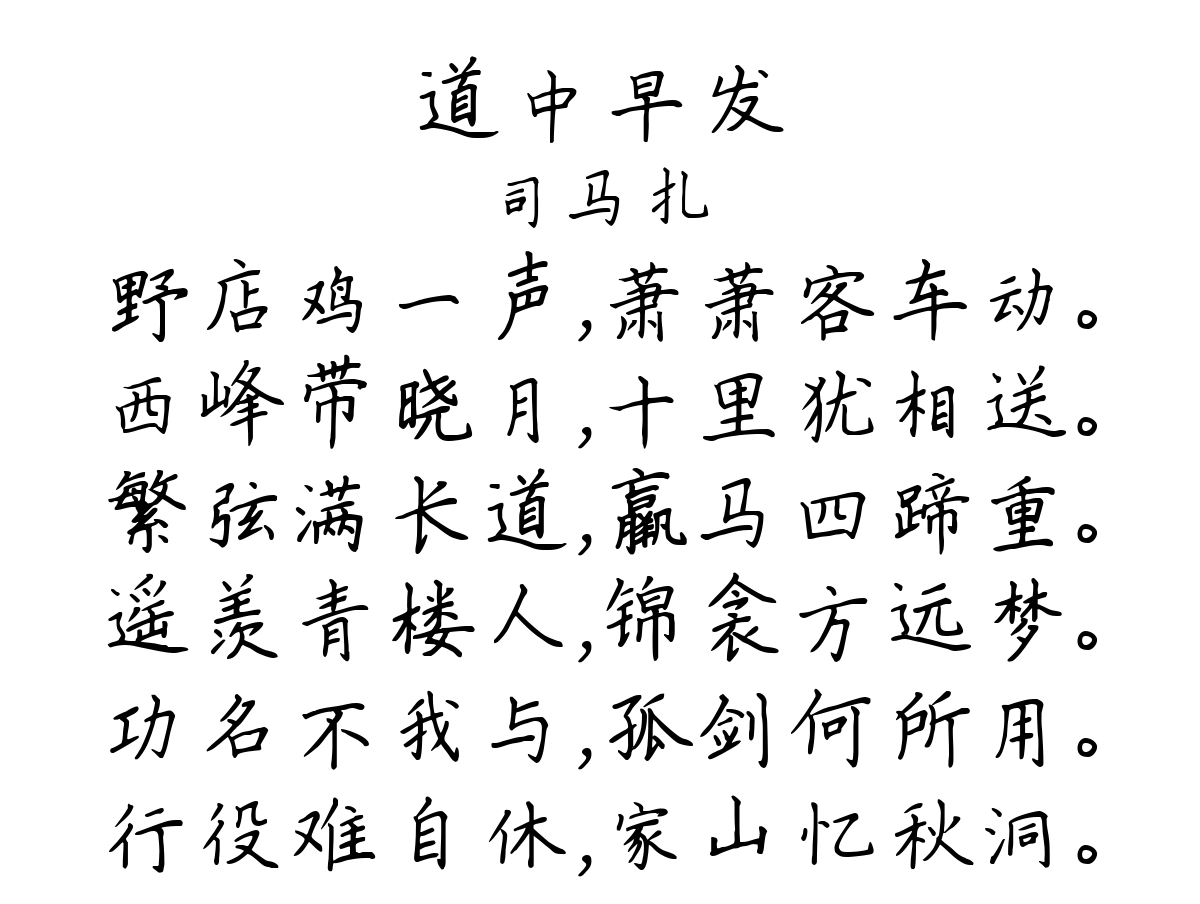 道中早发
司马扎
野店鸡一声,萧萧客车动。
西峰带晓月,十里犹相送。
繁弦满长道,羸马四蹄重。
遥羡青楼人,锦衾方远梦。
功名不我与,孤剑何所用。
行役难自休,家山忆秋洞。